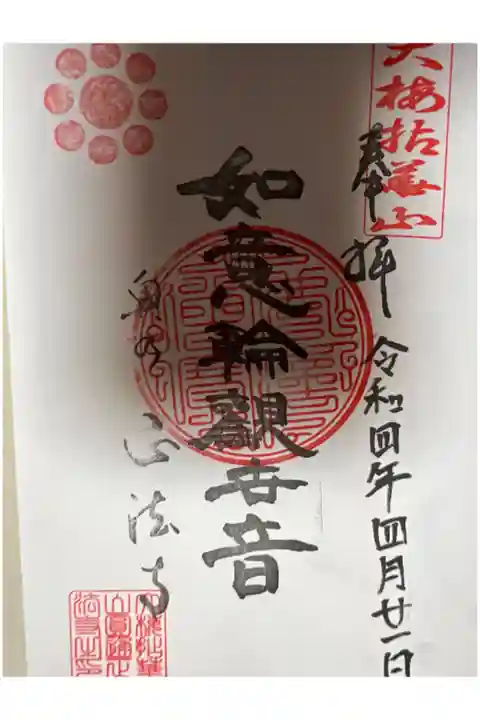 大梅拈華山
奉拝
令和四年四月廿一日
如意輪観世音
奥の
正法寺